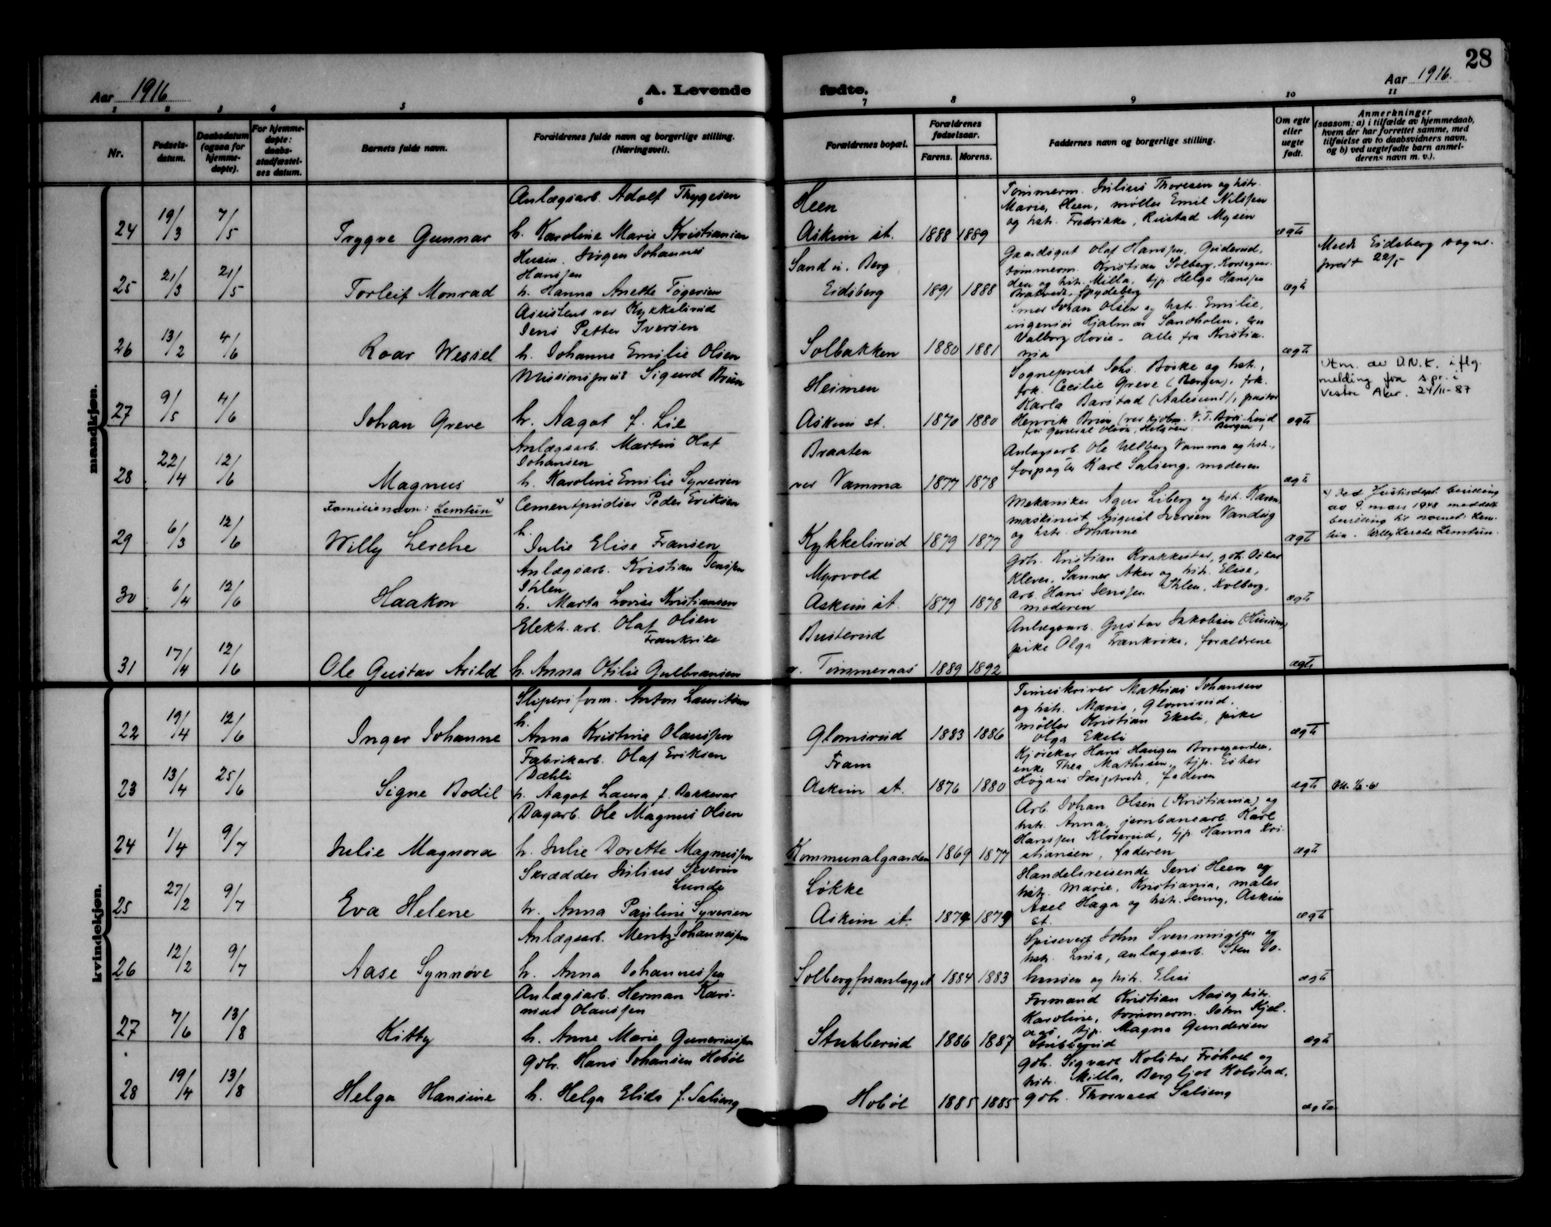 28
Aar 1916
A. Levende
fødte.
Aar 1916.
1 2 3 4 5 6 7 8 9 10 11
Nr.
Fødsels-
datum.
Daabsdatum
(ogsaa for
hjemme-
døpte).
For hjemme-
døpte:
daabs-
stadfæstel-
ses datum.
Barnets fulde navn.
Forældrenes fulde navn og borgerlige stilling.
(Næringsvei).
Forældrenes bopæl.
Forældrenes
fødselsaar.
Farens. Morens.
Faddernes navn og borgerlige stilling.
Om egte
eller
uegte
født.
Anmerkninger
(saasom: a) i tilfælde av hjemmedaab,
hvem der har forrettet samme, med
tilføielse av to daabsvidners navn,
og b) ved uegtefødte barn anmel-
derens navn m. v.).
mandkjøn.
24 19/3 7/5 Trygve Gunnar
Anlægsarb. Adolf Thygesen
h. Karoline Marie Kristiansen
Heen
Askim st. 1888 1889
Tømmerm. Julius Thoresen og hst.
Marie, Heen, møller Emil Nilssen
og hst. Fredrikke, Rustad Mysen
ægte
25 21/3 21/5 Torleif Monrad
Husm. Jørgen Johannes
Hanssen
h. Hanna Anette Togersen
Sand u. Berg
Eidsberg 1891 1888
Gaardsgut Olaf Hanssen,
tømmerm. Kristian Solberg,
og hst. Milla, tjp. Helga Hanssen
Spydeberg
ægte
Meldt Eidsberg sogne-
prest 22/5
26 13/2 4/6 Roar Wessel
Assistent ved Kykkelsrud
Jens Petter Iversen
h. Johanne Emilie Olsen
Solbakken 1880 1881
Smed Johan Olsen og hst. Emilie,
ingeniør Hjalmar Sandholen, fru
Valborg Hovie. Alle fra Kristia-
nia
ægte
27 9/5 4/6 Johan Greve
Missionsprest Sigurd Bruun
h. Aagot f. Lie
Heimen
Askim st. 1870 1880
Sogneprest Johs. Barke og hst.,
frk. Cecilie Greve (Bergen), frk.
Karla Barstad (Aalesund), pastor
Henrik Bruun
ægte
Utm. av D.N.K. iflg.
melding fra spr. i
Vestre Aker. 24/11-87
28 22/4 12/6 Magnus
Anlægsarb. Martin Olaf
Johansen
h. Karoline Emilie Syversen
Braaten
ved Vamma 1877 1878
Anlægsarb. Ole Ullberg Vamma og hst.,
forpagter Karl Salseng, moderen
ægte
Familienavn: Lemstun x)
29 6/3 12/6 Willy Lerche
Cementpudser Peder Eriksen
h.
Julie Elise Fransen
Kykkelsrud 1879 1877
Mekaniker Aage Liberg og hst. Karen,
maskinist Sigurd Iversen Vandug
og hst. Johanne
ægte
30 6/4 12/6 Haakon
Anlægsarb. Kristian Jenssen
Ihlen
h. Marta Lovise Kristiansen
Myrvold
Askim st. 1879 1878
Gdb. Kristian Krokkestad, gdb. Oskar
Klever, Sanner Aker og hst. Elise,
arb. Hans Jenssen Ihlen, Kolberg,
moderen
ægte
31 17/4 12/6 Ole Gustav Arild
Elekt. arb. Olaf Olsen
Frankrike
h. Anna Otilie Gulbransen
Busterud
v. Tømmeraas 1889 1892
Anlægsarb. Gustav Jakobsen
pike Olga Frankrike, forældrene
ægte
kvindekjøn.
22 19/4 12/6 Inger Johanne
Sliperiform. Anton Lauritsen
h.
Anna Kristine Olaussen
Glomsrud 1883 1886
Timeskriver Mathias Johansen
og hst. Marie, Glomsrud,
møller Kristian Ekeli, pike
Olga Ekeli
ægte
23 13/4 25/6 Signe Bodil
Fabrikarb. Olaf Eriksen
Dæhli
h. Aagot Laura f. Bakkerud
Fram
Askim st. 1876 1880
Kjøresker Hans Haugen
enke Thea Mathisen, tjp. Ester
Hogaas Skiptvedt, faderen
ægte
24 1/4 9/7 Julie Magnora
Dagarb. Ole Magnus Olsen
h. Julie Dorette Magnussen
Kommunalgaarden 1869 1877
Arb. Johan Olsen (Kristiania) og
hst. Anna, jernbanearb. Karl
Hanssen Kloserud, tjp. Hanna Kri-
stiansen, faderen
ægte
25 27/2 9/7 Eva Helene
Skrædder Julius Severin
Lunde
h. Anna Pauline Syversen
Løkke
Askim st. 1874 1879
Handelsreisende Jens Heen og
hst. Marie, Kristiania, maler
Axel Haga og hst. Jenny, Askim
st.
ægte
26 12/2 9/7 Aase Synnøve
Anlægsarb. Mentz Johannessen
h. Anna Johannessen
Solbergfosanlægget 1884 1883
Spisevert John Svenningsen og
hst. Lina, anlægsarb. Sten Jo-
hansen og hst. Elise
ægte
27 7/6 13/8 Kitty
Anlægsarb. Herman Kari-
nius Olaussen
h. Anne Marie Gunerussen
Stubberud 1886 1887
Formand Kristian Aas og hst.
Karoline, tømmerm. John Kjøl-
aas, tjp. Magna Gundersen
Stubberud
ægte
28 19/4 13/8 Helga Hansine
Gdbr. Hans Johansen Hobøl
h. Helga Elida f. Salseng
Hobøl 1885 1885
Gdb. Sigvart Kolstad Frøhoel og
hst. Milla, Bergljot Kolstad,
gdb. Thorvald Salseng
ægte